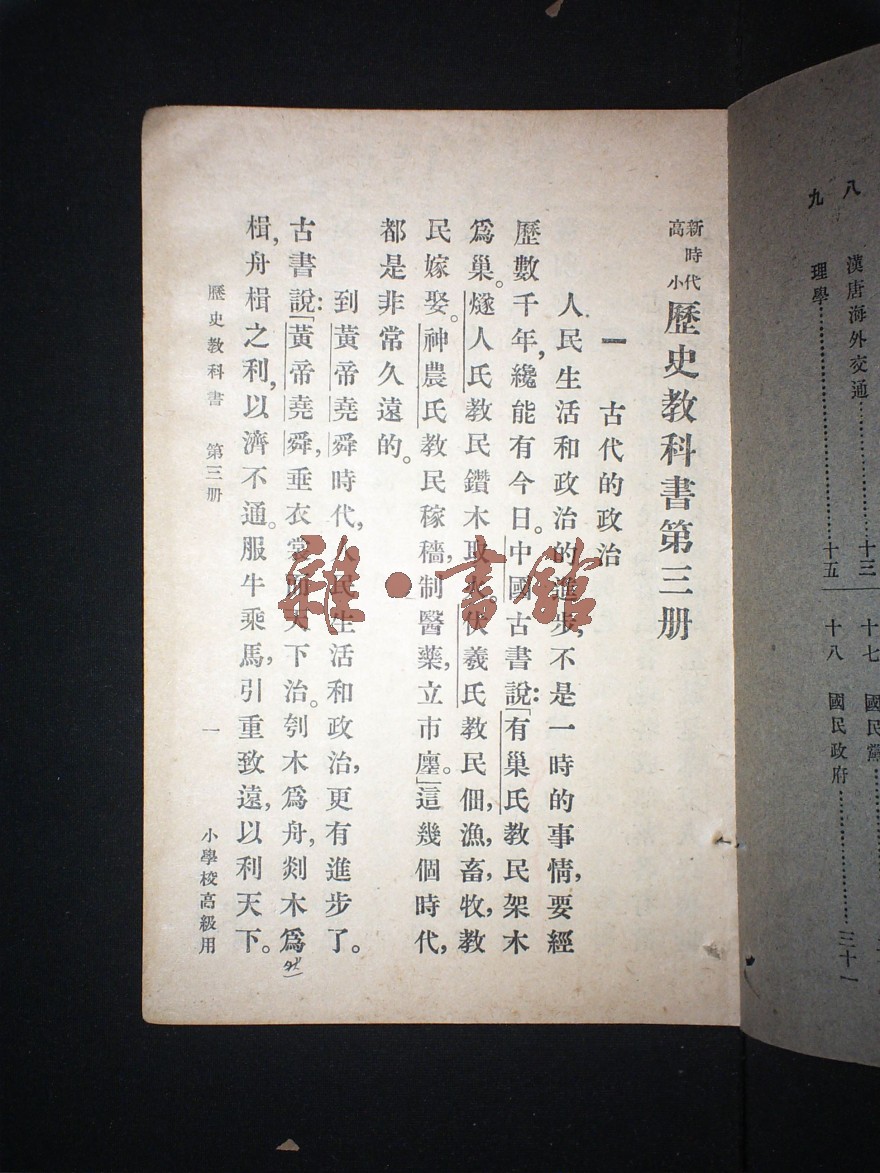 新時代高小 歷史教科書第三册
一 古代的政治
人民生活和政治的進步,不是一時的事情,要經
歷數千年,纔能有今日。中國古書說:「有巢氏教民架木
爲巢。燧人氏教民鑽木取火。伏羲氏教民佃,漁,畜,牧,教
民嫁娶。神農氏教民稼穡,制醫藥,立市廛。」這幾個時代,
都是非常久遠的。
到黃帝堯舜時代,人民生活和政治,更有進步了。
古書說:「黃帝堯舜,垂衣裳而天下治。刳木爲舟,剡木爲
楫,舟楫之利,以濟不通。服牛乘馬,引重致遠,以利天下。
歷史教科書 第三册 一 小學校高級用
八 漢唐海外交通 十三
九 理學 十五
十七 國民黨
十八 國民政府 三十一
雜·書館